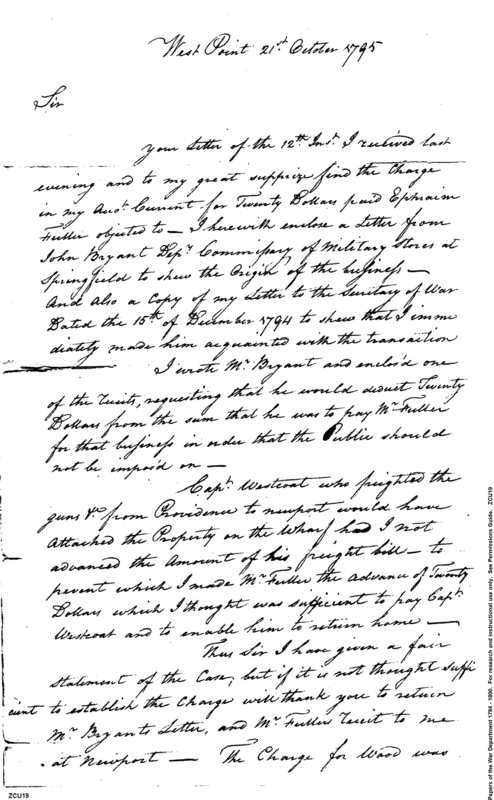 West Point 21st October 1795
Sir
your Letter of the 12th Inst. I received last
evening and to my great supprize find the Charge
in my Acct. Current for Twenty Dollars paid Ephraim
Fuller objected to — I herewith enclose a Letter from
John Bryant Depy. Commissary of Military Stores at
Springfield to shew the Origin of the business —
And also a Copy of my Letter to the Secretary of War
Dated the 15th of December 1794 to shew that I imme
diately made him acquainted with the transaction
I wrote Mr. Bryant and enclos'd one
of the recits, requesting that he would deduct Twenty
Dollars from the sum that he was to pay Mr. Fuller
for that business in order that the Public should
not be impos'd on —
Capt. Westcoat who freighted the
guns &c. from Providence to newport would have
Attached the Property on the Wharf had I not
advanced the Amount of his freight bill — to
prevent which I made Mr. Fuller the Advance of Twenty
Dollars which I thought was sufficient to pay Capt.
Westcoat and to enable him to return home —
Thus Sir I have given a fair
statement of the Case, but if it is not thought suffi
cient to establish the Charge will thank you to return
Mr. Bryants Letter, and Mr. Fuller recit to me
at Newport — The Charge for Wood was
ZCU19
Papers of the War Department 1784 - 1800. For research and instructional use only. See Permissions Guide. ZCU19